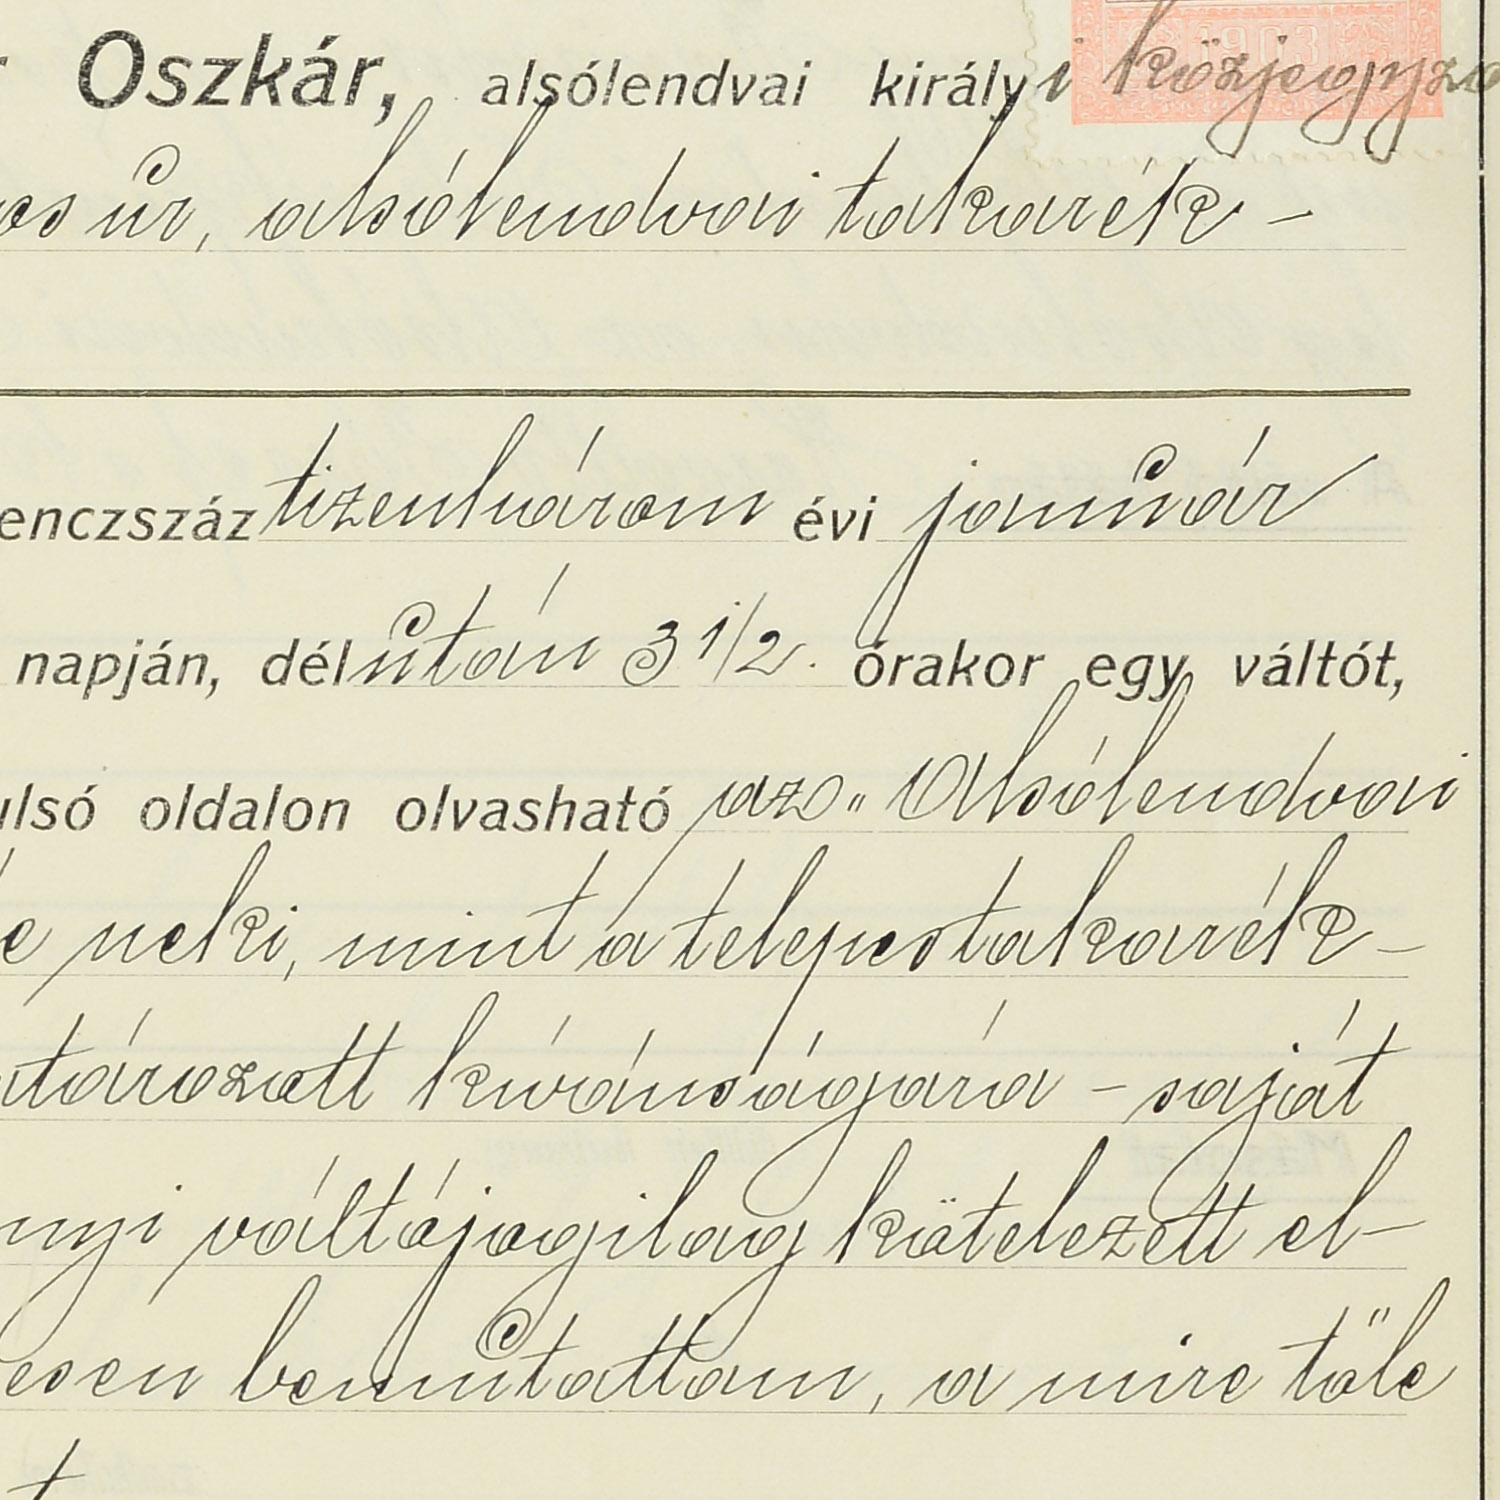 Oszkár, alsólendvai királyi közjegyző
úr, alsólendvai takarék-
enczszáz tizenhárom évi január
napján, délután 3 1/2. órakor egy váltót,
ulsó oldalon olvasható az „Alsólendvai
neki, mint a telepes takarék-
tározott kívánságára - saját
nyi váltójogilag kötelezett el-
esen bemutattam, a mire tőle